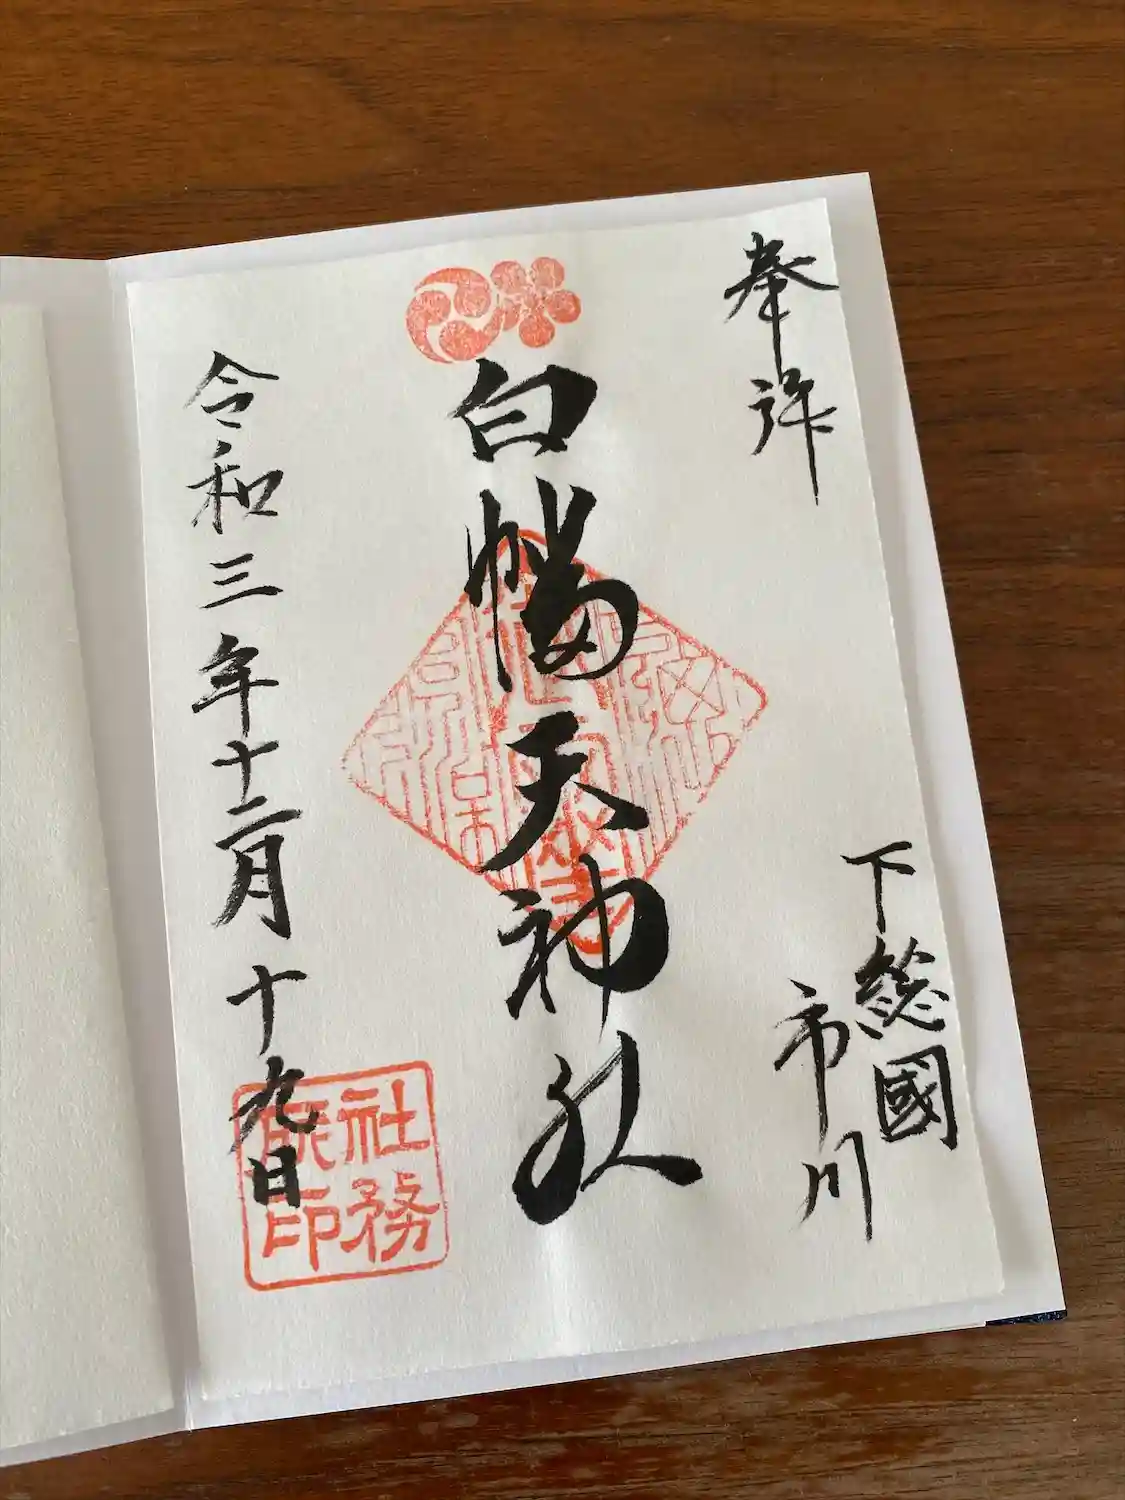 奉拝
下総國
市川
白幡天神社
令和三年十二月十九日
社務
印